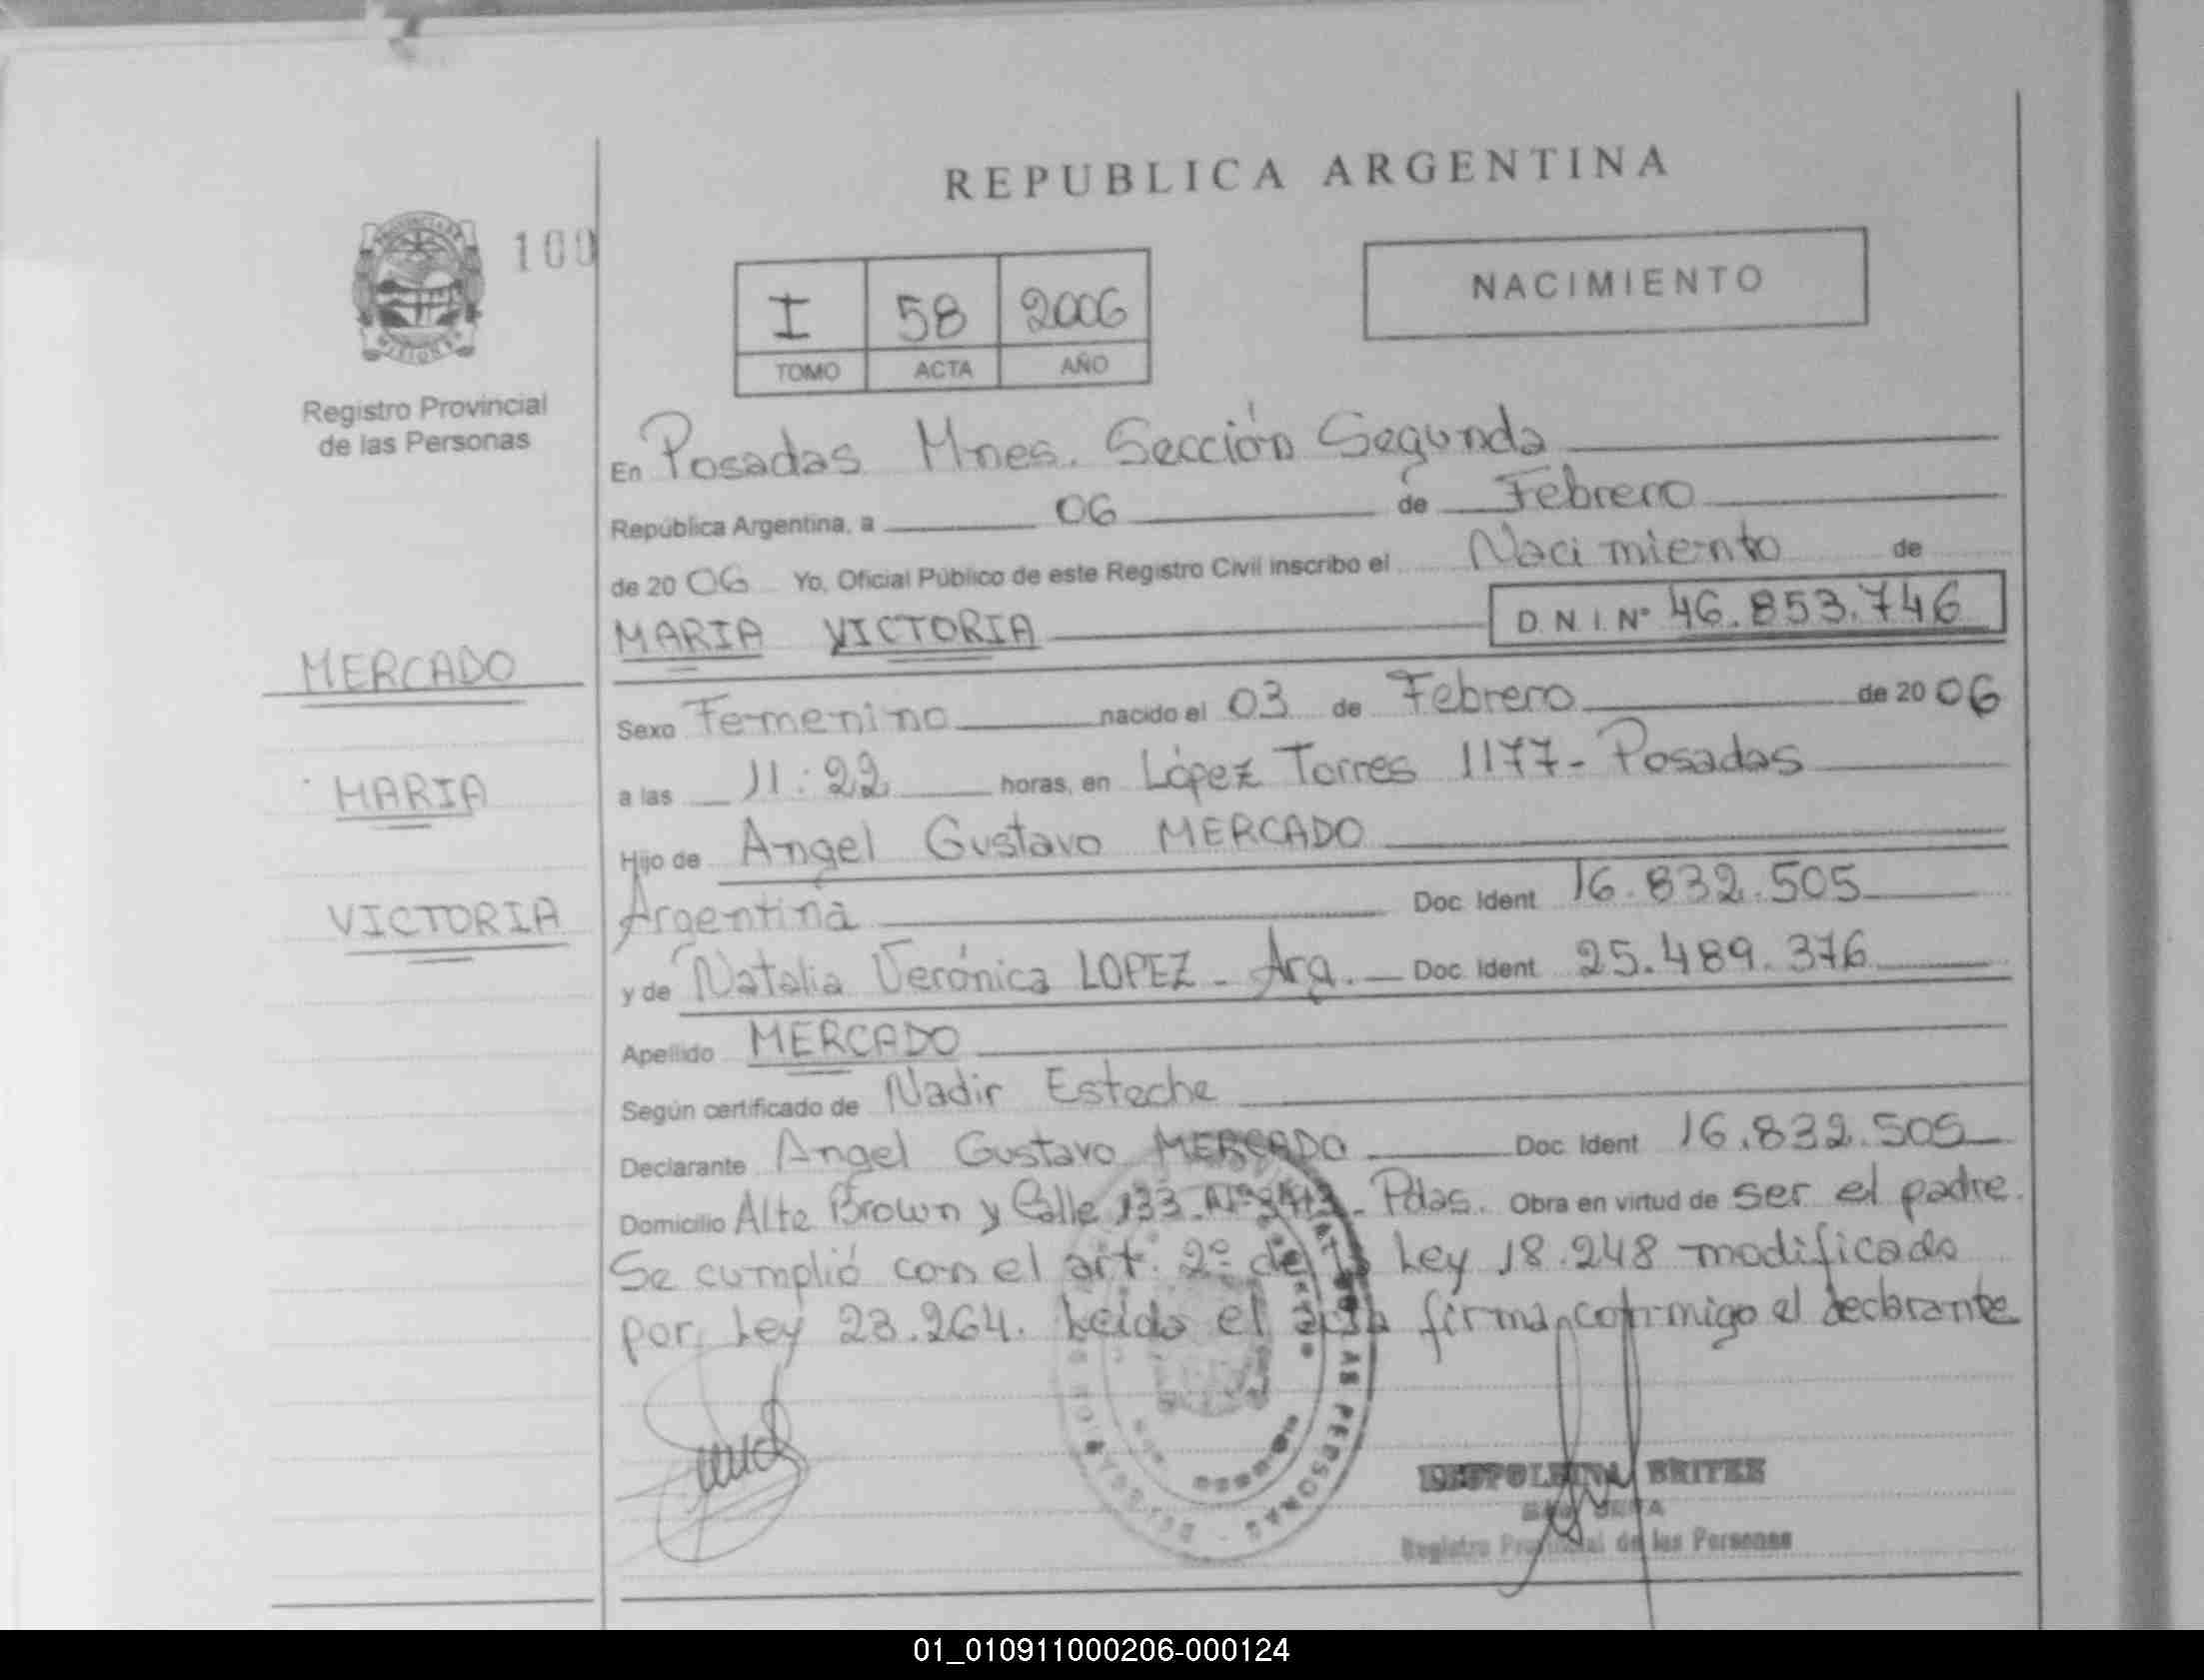 REPUBLICA ARGENTINA
100
NACIMIENTO
I 58 2006
TOMO ACTA AÑO
Registro Provincial
de las Personas
En Posadas Mnes. Sección Segunda
República Argentina, a 06 de Febrero
de 20 06 Yo, Oficial Público de este Registro Civil inscribo el Nacimiento de
MARIA VICTORIA D.N.I. Nº 46.853.746
MERCADO
Sexo Femenino nacido el 03 de Febrero de 20 06
MARIA
a las 11:22 horas, en López Torres 1177- Posadas
Hijo de Angel Gustavo MERCADO
VICTORIA
Argentina Doc. Ident 16.832.505
y de Natalia Verónica LOPEZ - Arg. Doc. Ident 25.489.376
Apellido MERCADO
Según certificado de Nadir Esteche
Declarante Angel Gustavo MERCADO Doc. Ident 16.832.505
Domicilio Alte Brown y Calle 133 - Pdas. Obra en virtud de ser el padre.
Se cumplió con el art. 2º de la Ley 18.248 modificado
por Ley 23.264. Leida el acta firma conmigo el declarante
AS PERSONAS
BRITEZ
Registro Provincial de las Personas
01_010911000206-000124